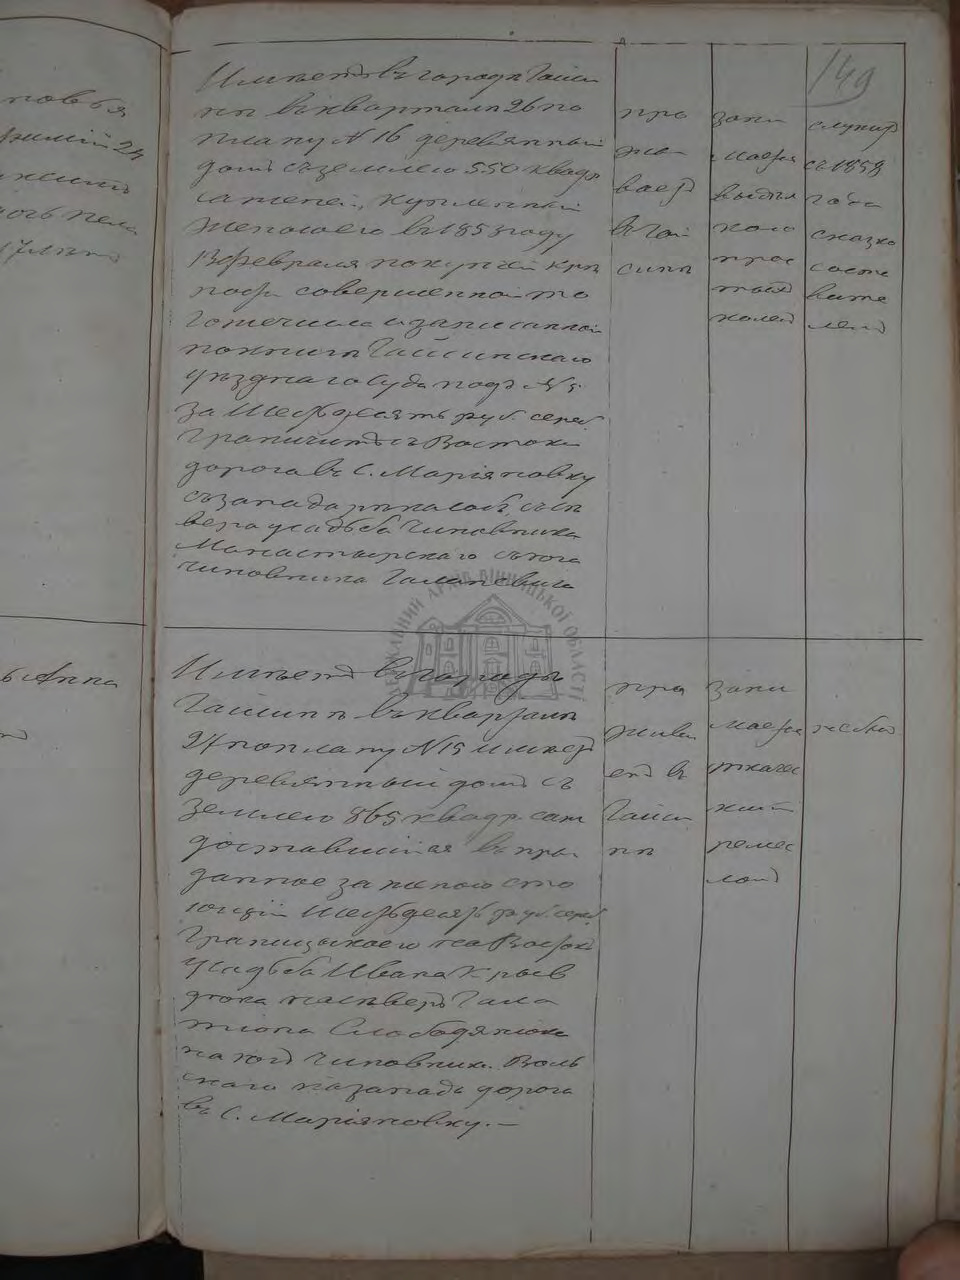 149
повья
24
Анна
Имеетъ въ городе Гайси
не въ квартале 26 по
плану № 16 деревянный
домъ съ землею 550 квадр
сажней, купленный
женою его въ 1853 году
февраля по купчей кре
пости совершенной то
го же числа и записанной
по книге Гайсинскаго
уезднаго Суда подъ № 5
за Шестьдесятъ руб. сереб.
Граничитъ съ Востока
дорога въ С. Маріяновку
съ запада съ се
вера усадьба Чиновника
Манастырскаго съ юга
чиновника
про
жи
ваетъ
въ Гай
сине
зани
мается
кого
прос
той
служитъ
съ 1858
года
сказко
соста
вите
лемъ
Имеетъ въ городе
Гайсине въ квартале
27 по плану № 15 имеетъ
деревянный домъ съ
землею 865 квадр. саж
доставшійся въ при
данное за женою сто
ющій Шестьдесятъ руб. сереб.
Граница коего на Востокъ
усадьба Ивана
дюка на северъ Гала
тіона Слободянюка
на югъ чиновника. Воль
скаго на западъ дорога
въ С. Маріяновку. —
про
жива
етъ въ
Гайси
не
зани
мается
ткачес
кимъ
ремес
ломъ
не былъ
ДЕРЖАВНИЙ АРХІВ ВІННИЦЬКОЇ ОБЛАСТІ